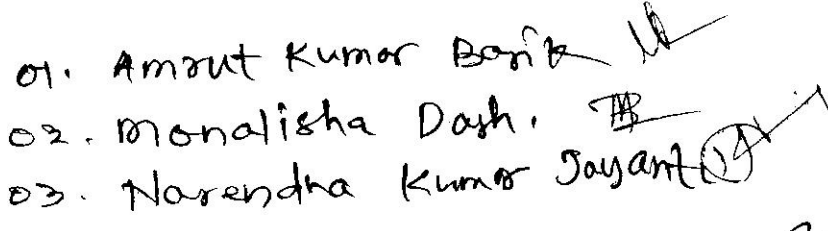 01. Amrut Kumar Barik
02. Monalisha Dash.
03. Narendra Kumar Jayanti